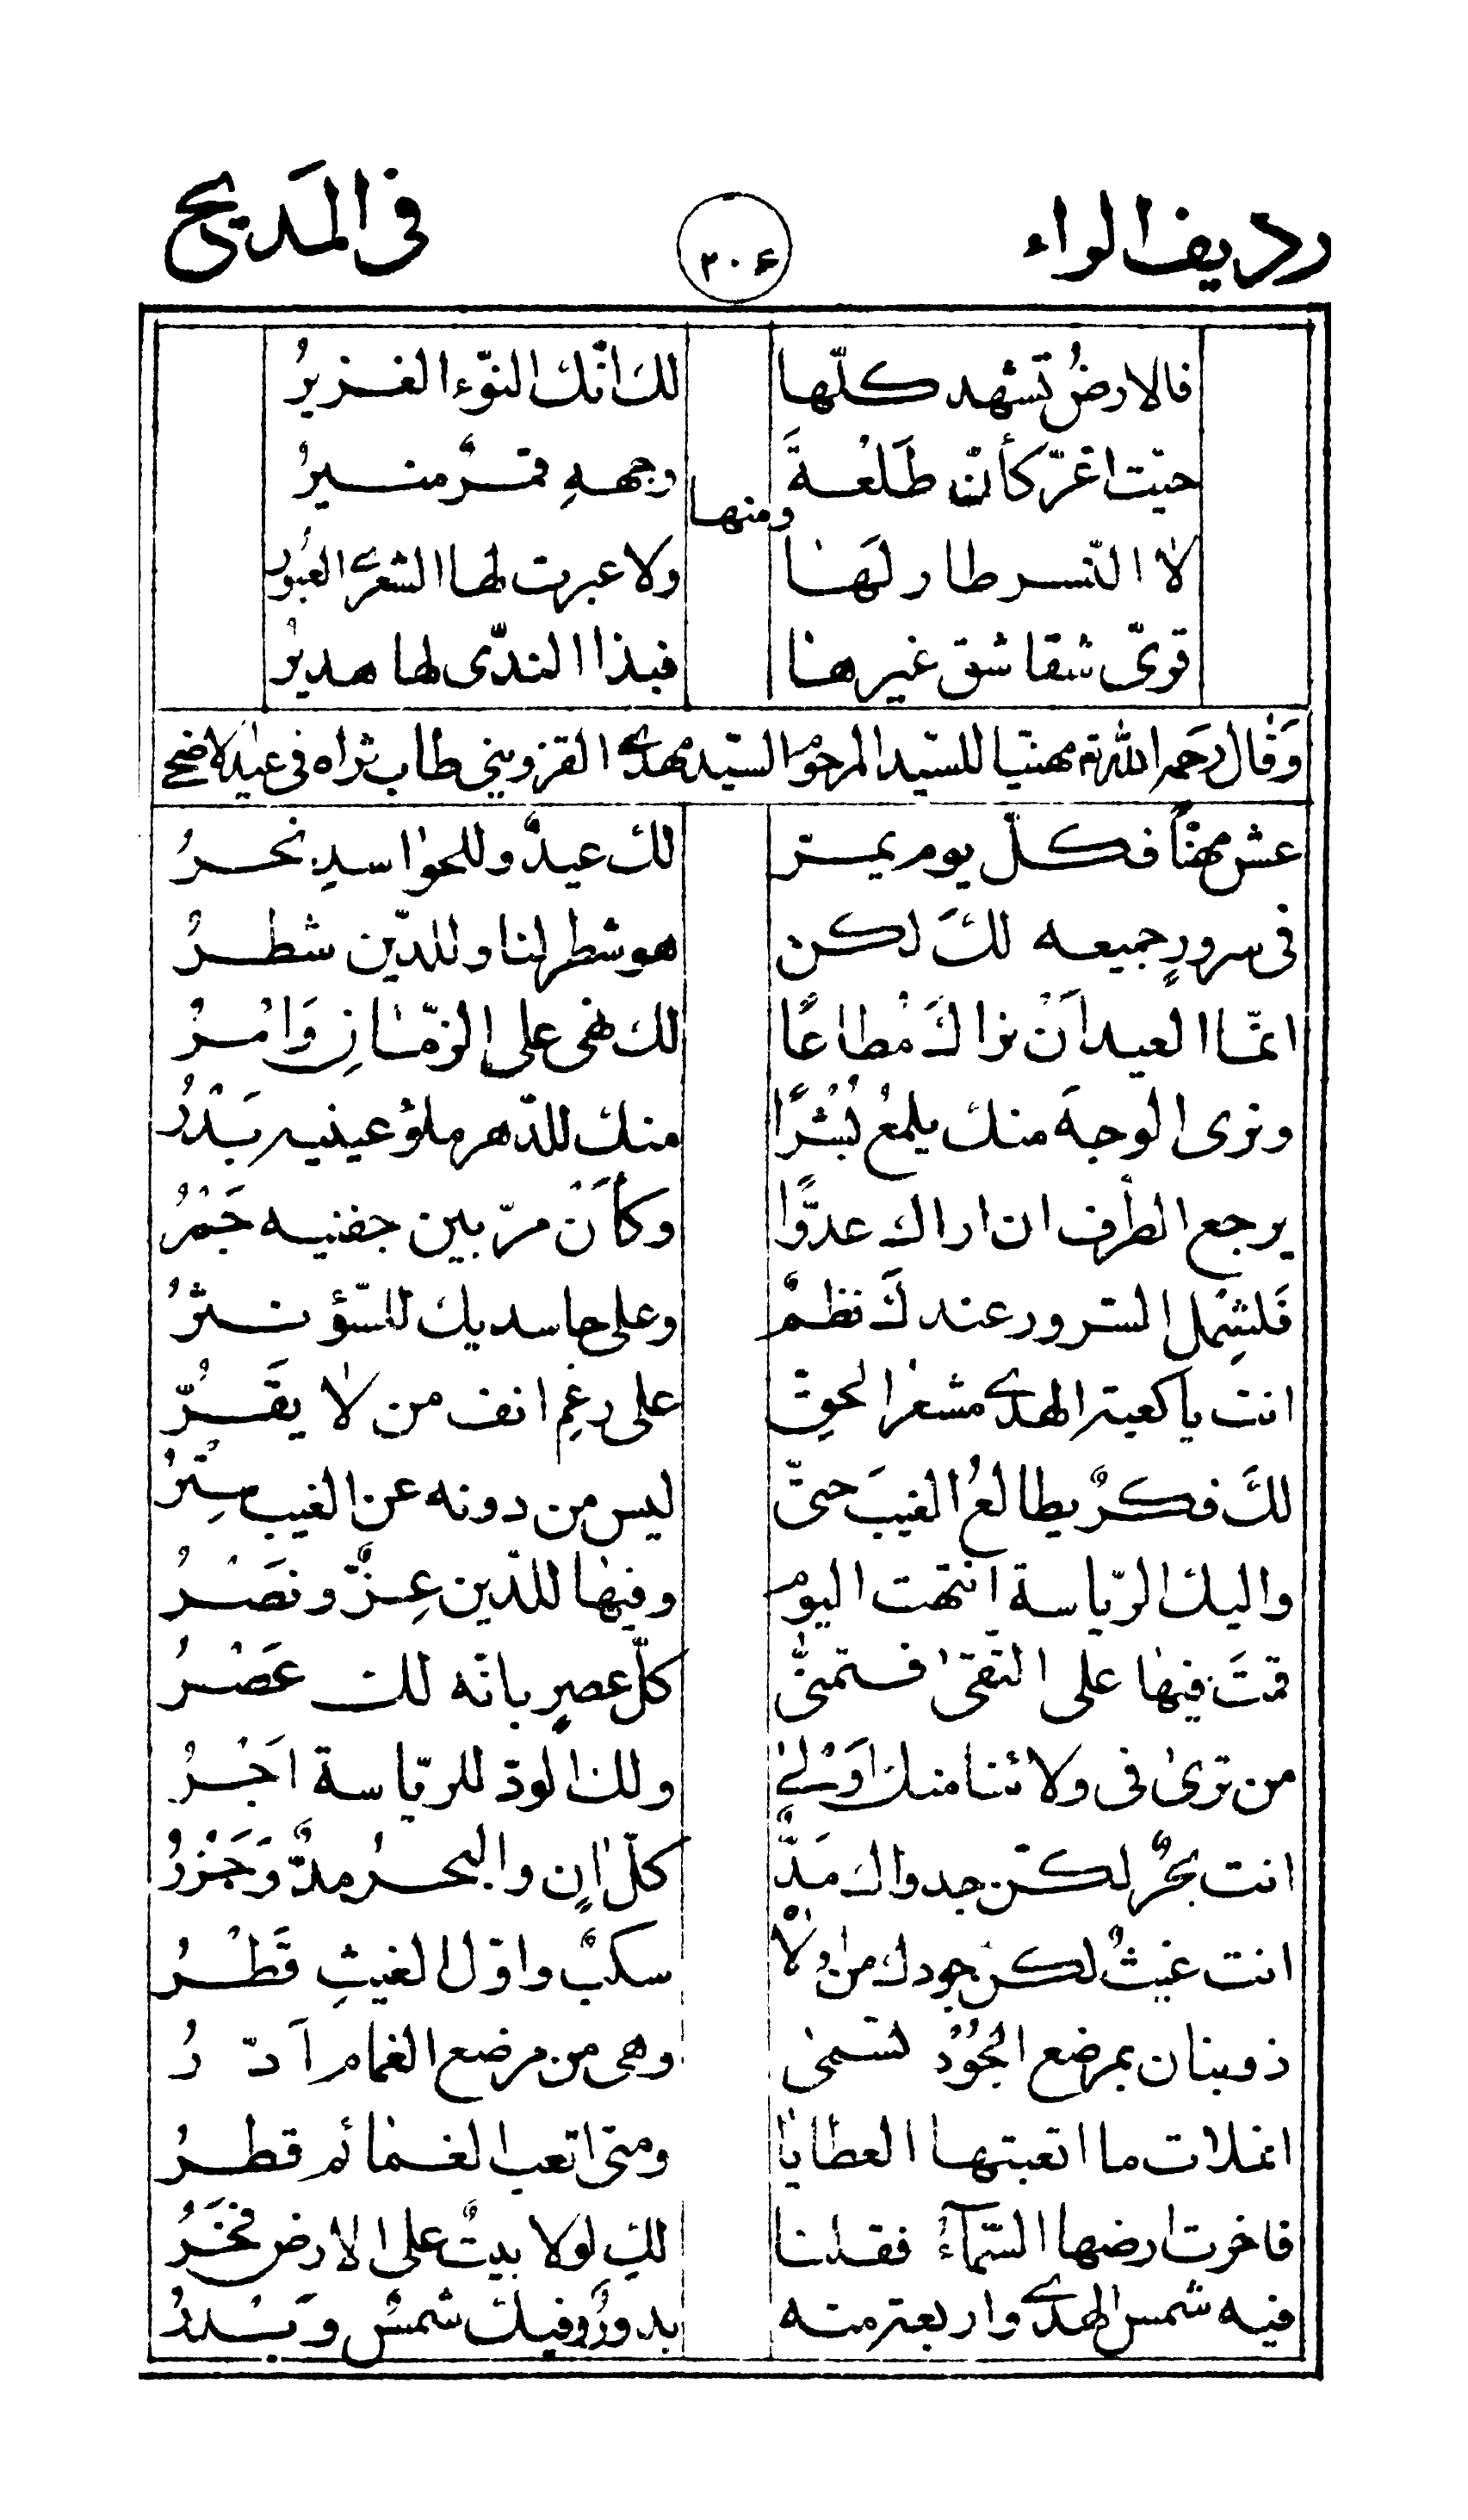 رديف الراء ٣٠۶ في المَديح
فالارضُ تشهد كلّها لك انّك النّوء الغزيرُ
حيّت اغرّ كأنّ طَلعُةَ وجههِ قمرٌ منيرُ
ومنها
لا النّسر طار لهَا ولا عبرت لها الشعرى العبُور
قوّى شقاشق غيرها فبذا الندّى لها هديرُ
وَقال رحمه الله تع مهنّيا للسّيد المرحوم السيّد مهدى القزويني طاب ثراه في عيد الاضحى
عش مهنّاً فكلّ يوم يمر لك عيدٌ وللحواسدِ نحرُ
في سرورٍ جميعه لكَ لكن هو شطر لنا وللدّين شطرُ
انمّا العيد اَنْ نراكَ مُطاعًا لك نهى على الزّمانِ وَامْرُ
ونرى الوجهَ منك يلمعُ بُشْرًا منك للدّهر ملؤ عينيه بَدْرُ
يرجع الطرف ان اراك عدوًّا وكأنْ مرّ بين جفنيه جَمْرُ
فَلشِمل السّرور عندكَ نظمٌ وعلى حاسديك للسّؤ نثرُ
انت يا كعبة الهدى مشعر الحق على رغِم انف من لا يقَرُّ
لكَ فكرٌ يطالعُ الغيبَ حتىّ ليس من دونه عن الغيب سِتْرُ
واليك الرّياسة انتهت اليوم وفيها للدّين عِزٌّ ونصَرُ
قمتَ فيها على التقى فتمنّى كلّ عصرٍ بانّه لك عَصْرُ
من ترى في ولائنا منك اَوْلى ولنا لودّ للرّياسة اَجْرُ
انت بحرٌ لكن جدواك مَدٌّ كلّ اٰنٍ والبحرُ مدٌّ وَجَزْرُ
انت غيثٌ لكن جودك من ولاْ سكبٌ واوّل الغيثِ قَطْرُ
ذو بنان بمرضع الجُوُدْ تسمى وهى من مرضع الغمام اَدّرُ
انملات ما اتعبتها العطايا ومتى اتعب الغمائم قطرُ
فاخرت ارضها السّمآءُ فقلنا لكِ لولا بيتٌ على الارض فخَرُ
فيه شمس الهدى واربعة منه بدورٌ وفيك شمسٌ وبَدرُ